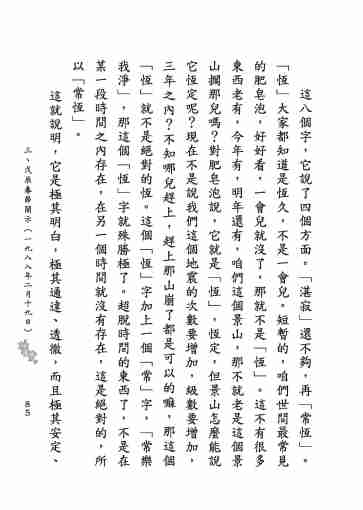 這八個字，它說了四個方面。「湛寂」還不夠，再「常恆」。
「恆」大家都知道是恆久，不是一會兒。短暫的，咱們世間最常見
的肥皂泡，好好看，一會兒就沒了，那就不是「恆」。這不有很多
東西老有，今年有，明年還有，咱們這個景山，那不就老是這個景
山擱那兒嗎？對肥皂泡說，它就是「恆」，恆定，但景山怎麼能說
它恆定呢？現在不是說我們這個地震的次數要增加，級數要增加，
三年之內？不知哪兒趕上，趕上那山崩了都是可以的嘛，那這個
「恆」就不是絕對的恆。這個「恆」字加上一個「常」字，「常樂
我淨」，那這個「恆」字就殊勝極了。超脫時間的東西了，不是在
某一段時間之內存在，在另一個時間就沒有存在，這是絕對的，所
以「常恆」。
這就說明，它是極其明白、極其通達、透徹，而且極其安定、
三、戊辰春節開示（一九八八年二月十九日）
85